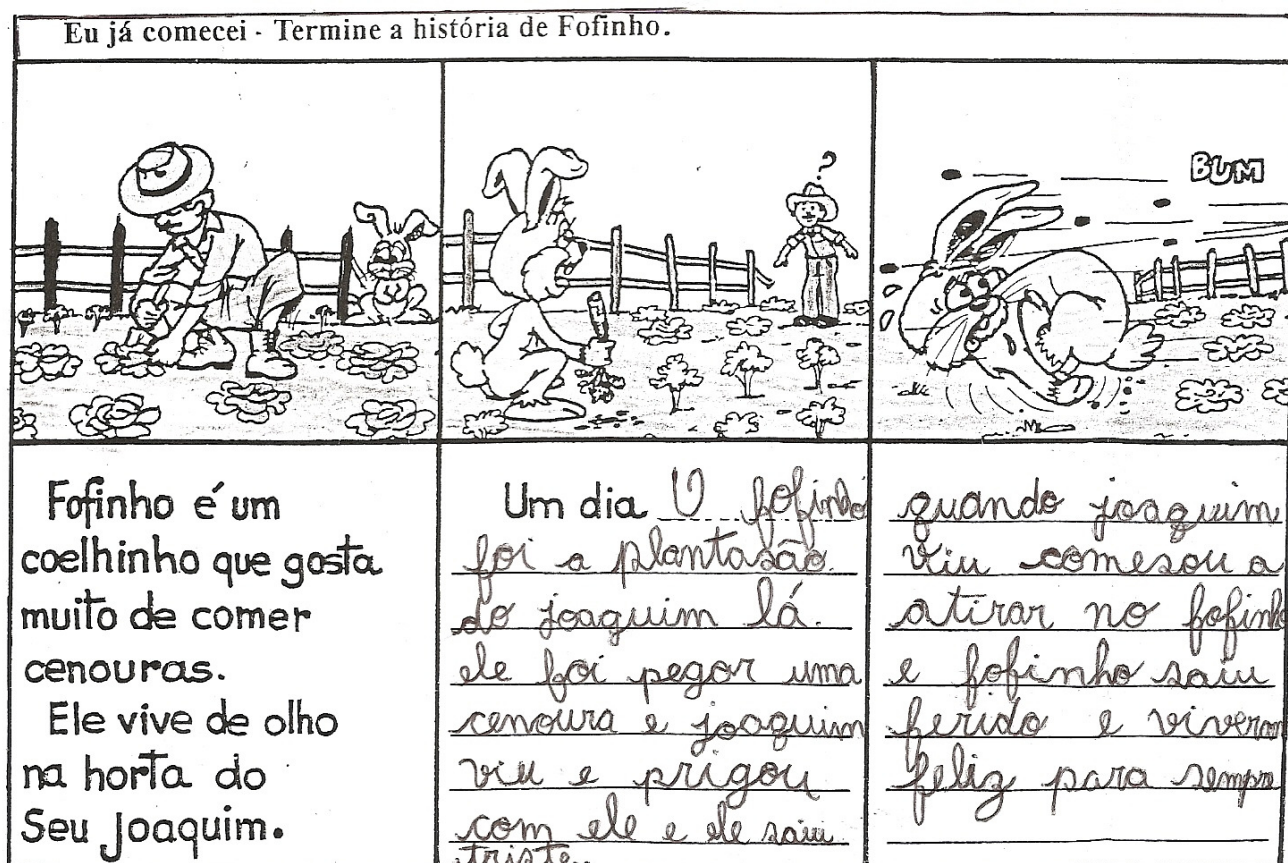 Eu já comecei - Termine a história de Fofinho.
?
BUM
Fofinho é um
coelhinho que gosta
muito de comer
cenouras.
Ele vive de olho
na horta do
Seu Joaquim.
Um dia O fofinho
foi a plantasão
do joaquim lá.
ele foi pegar uma
cenoura e joaquim
viu e prigou
com ele e ele saiu
triste.
quando joaquim
viu comesou a
atirar no fofinho
e fofinho saiu
ferido e viveram
feliz para sempre